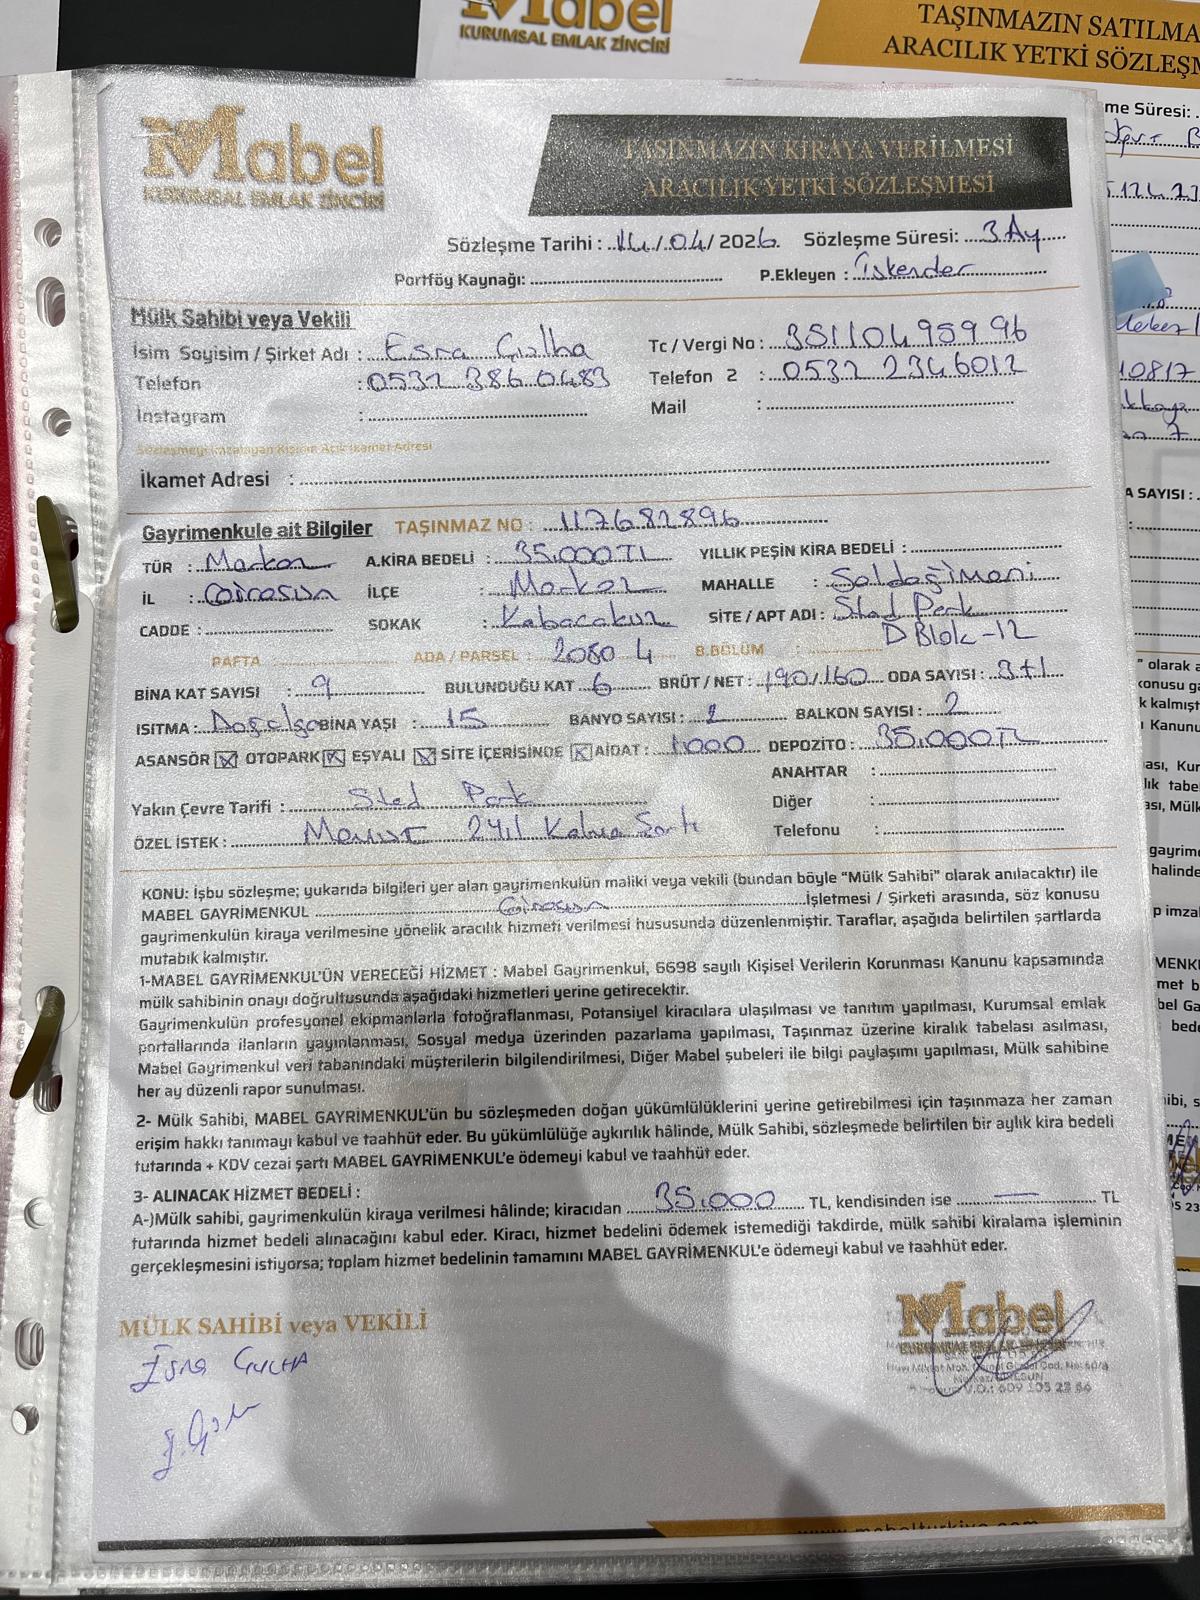 Mabel
KURUMSAL EMLAK ZİNCİRİ
TAŞINMAZIN SATILMA
ARACILIK YETKİ SÖZLEŞM
Mabel
KURUMSAL EMLAK ZİNCİRİ
TAŞINMAZIN KİRAYA VERİLMESİ
ARACILIK YETKİ SÖZLEŞMESİ
Sözleşme Tarihi : 14/04/2026. Sözleşme Süresi: 3 Ay
Portföy Kaynağı: P.Ekleyen : İskender
Mülk Sahibi veya Vekili
İsim Soyisim / Şirket Adı : Esra Çulha Tc / Vergi No : 35110495996
Telefon : 0532 386 0483 Telefon 2 : 0532 2346012
İnstagram : Mail :
Sözleşmeyi İmzalayan Kişinin Açık İkamet Adresi
İkamet Adresi :
Gayrimenkule ait Bilgiler TAŞINMAZ NO : 117682896
TÜR : Markoz A.KİRA BEDELİ : 35.000TL YILLIK PEŞİN KİRA BEDELİ :
İL : Girosun İLÇE : Morkoz MAHALLE : Soldoğimoni
CADDE : SOKAK : Kabacakuz SİTE / APT ADI : Stad Park
D Blok-12
PAFTA : ADA / PARSEL : 2080 4 B.BÖLÜM :
BİNA KAT SAYISI : 9 BULUNDUĞU KAT : 6 BRÜT / NET : 190/160 ODA SAYISI : 3+1
ISITMA : Doğalgo BİNA YAŞI : 15 BANYO SAYISI : 2 BALKON SAYISI : 2
ASANSÖR ☒ OTOPARK ☒ EŞYALI ☒ SİTE İÇERİSİNDE ☒ AİDAT : 1.000 DEPOZİTO : 35.000TL
ANAHTAR :
Yakın Çevre Tarifi : Stad Park Diğer :
ÖZEL İSTEK : Memur 2 Yıl Kalma Şartı Telefonu :
KONU: İşbu sözleşme; yukarıda bilgileri yer alan gayrimenkulün maliki veya vekili (bundan böyle "Mülk Sahibi" olarak anılacaktır) ile
MABEL GAYRİMENKUL Girosun İşletmesi / Şirketi arasında, söz konusu
gayrimenkulün kiraya verilmesine yönelik aracılık hizmeti verilmesi hususunda düzenlenmiştir. Taraflar, aşağıda belirtilen şartlarda
mutabık kalmıştır.
1-MABEL GAYRİMENKUL'ÜN VERECEĞİ HİZMET : Mabel Gayrimenkul, 6698 sayılı Kişisel Verilerin Korunması Kanunu kapsamında
mülk sahibinin onayı doğrultusunda aşağıdaki hizmetleri yerine getirecektir.
Gayrimenkulün profesyonel ekipmanlarla fotoğraflanması, Potansiyel kiracılara ulaşılması ve tanıtım yapılması, Kurumsal emlak
portallarında ilanların yayınlanması, Sosyal medya üzerinden pazarlama yapılması, Taşınmaz üzerine kiralık tabelası asılması,
Mabel Gayrimenkul veri tabanındaki müşterilerin bilgilendirilmesi, Diğer Mabel şubeleri ile bilgi paylaşımı yapılması, Mülk sahibine
her ay düzenli rapor sunulması.
2- Mülk Sahibi, MABEL GAYRİMENKUL'ün bu sözleşmeden doğan yükümlülüklerini yerine getirebilmesi için taşınmaza her zaman
erişim hakkı tanımayı kabul ve taahhüt eder. Bu yükümlülüğe aykırılık hâlinde, Mülk Sahibi, sözleşmede belirtilen bir aylık kira bedeli
tutarında + KDV cezai şartı MABEL GAYRİMENKUL'e ödemeyi kabul ve taahhüt eder.
3- ALINACAK HİZMET BEDELİ :
A-)Mülk sahibi, gayrimenkulün kiraya verilmesi hâlinde; kiracıdan 35.000 TL, kendisinden ise — TL
tutarında hizmet bedeli alınacağını kabul eder. Kiracı, hizmet bedelini ödemek istemediği takdirde, mülk sahibi kiralama işleminin
gerçekleşmesini istiyorsa; toplam hizmet bedelinin tamamını MABEL GAYRİMENKUL'e ödemeyi kabul ve taahhüt eder.
MÜLK SAHİBİ veya VEKİLİ
Esra ÇULHA
Mabel
KURUMSAL EMLAK ZİNCİRİ
V.D.: 609 105 23 86
www.mabelturkiye.com